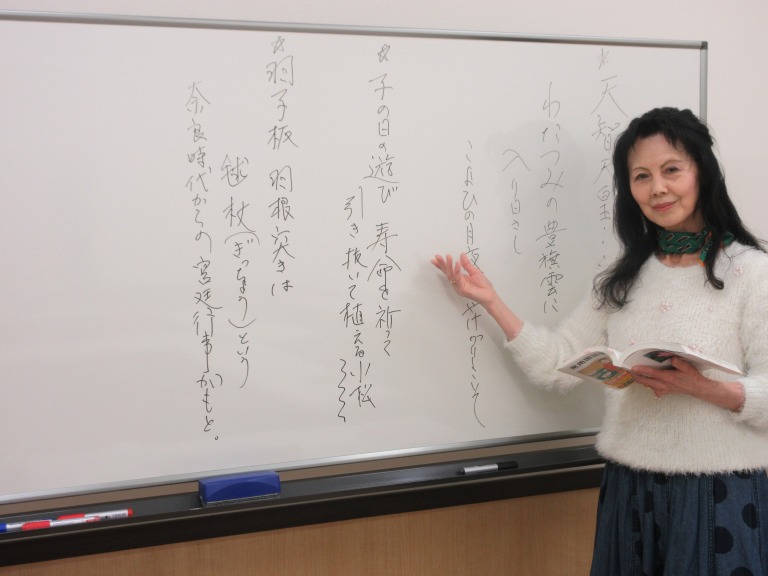 *天智天皇
わたつみの豊旗雲に
入り日さし
こよひの月夜
*子の日の遊び 寿命を祈って
引き抜いて植える小松
*羽子板 羽根突きは
毬杖(ぎっちょう)という
奈良時代からの宮廷行事がもと。